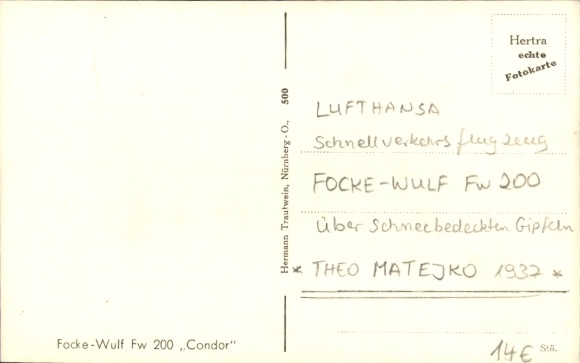 Hertra
echte
Fotokarte
Hermann Trautwein, Nürnberg-O., 500
LUFTHANSA
Schnellverkehrsflugzeug
FOCKE-WULF Fw 200
über Schneebedeckten Gipfeln
* THEO MATEJKO 1937 *
Focke-Wulf Fw 200 „Condor"
14€
Stö.